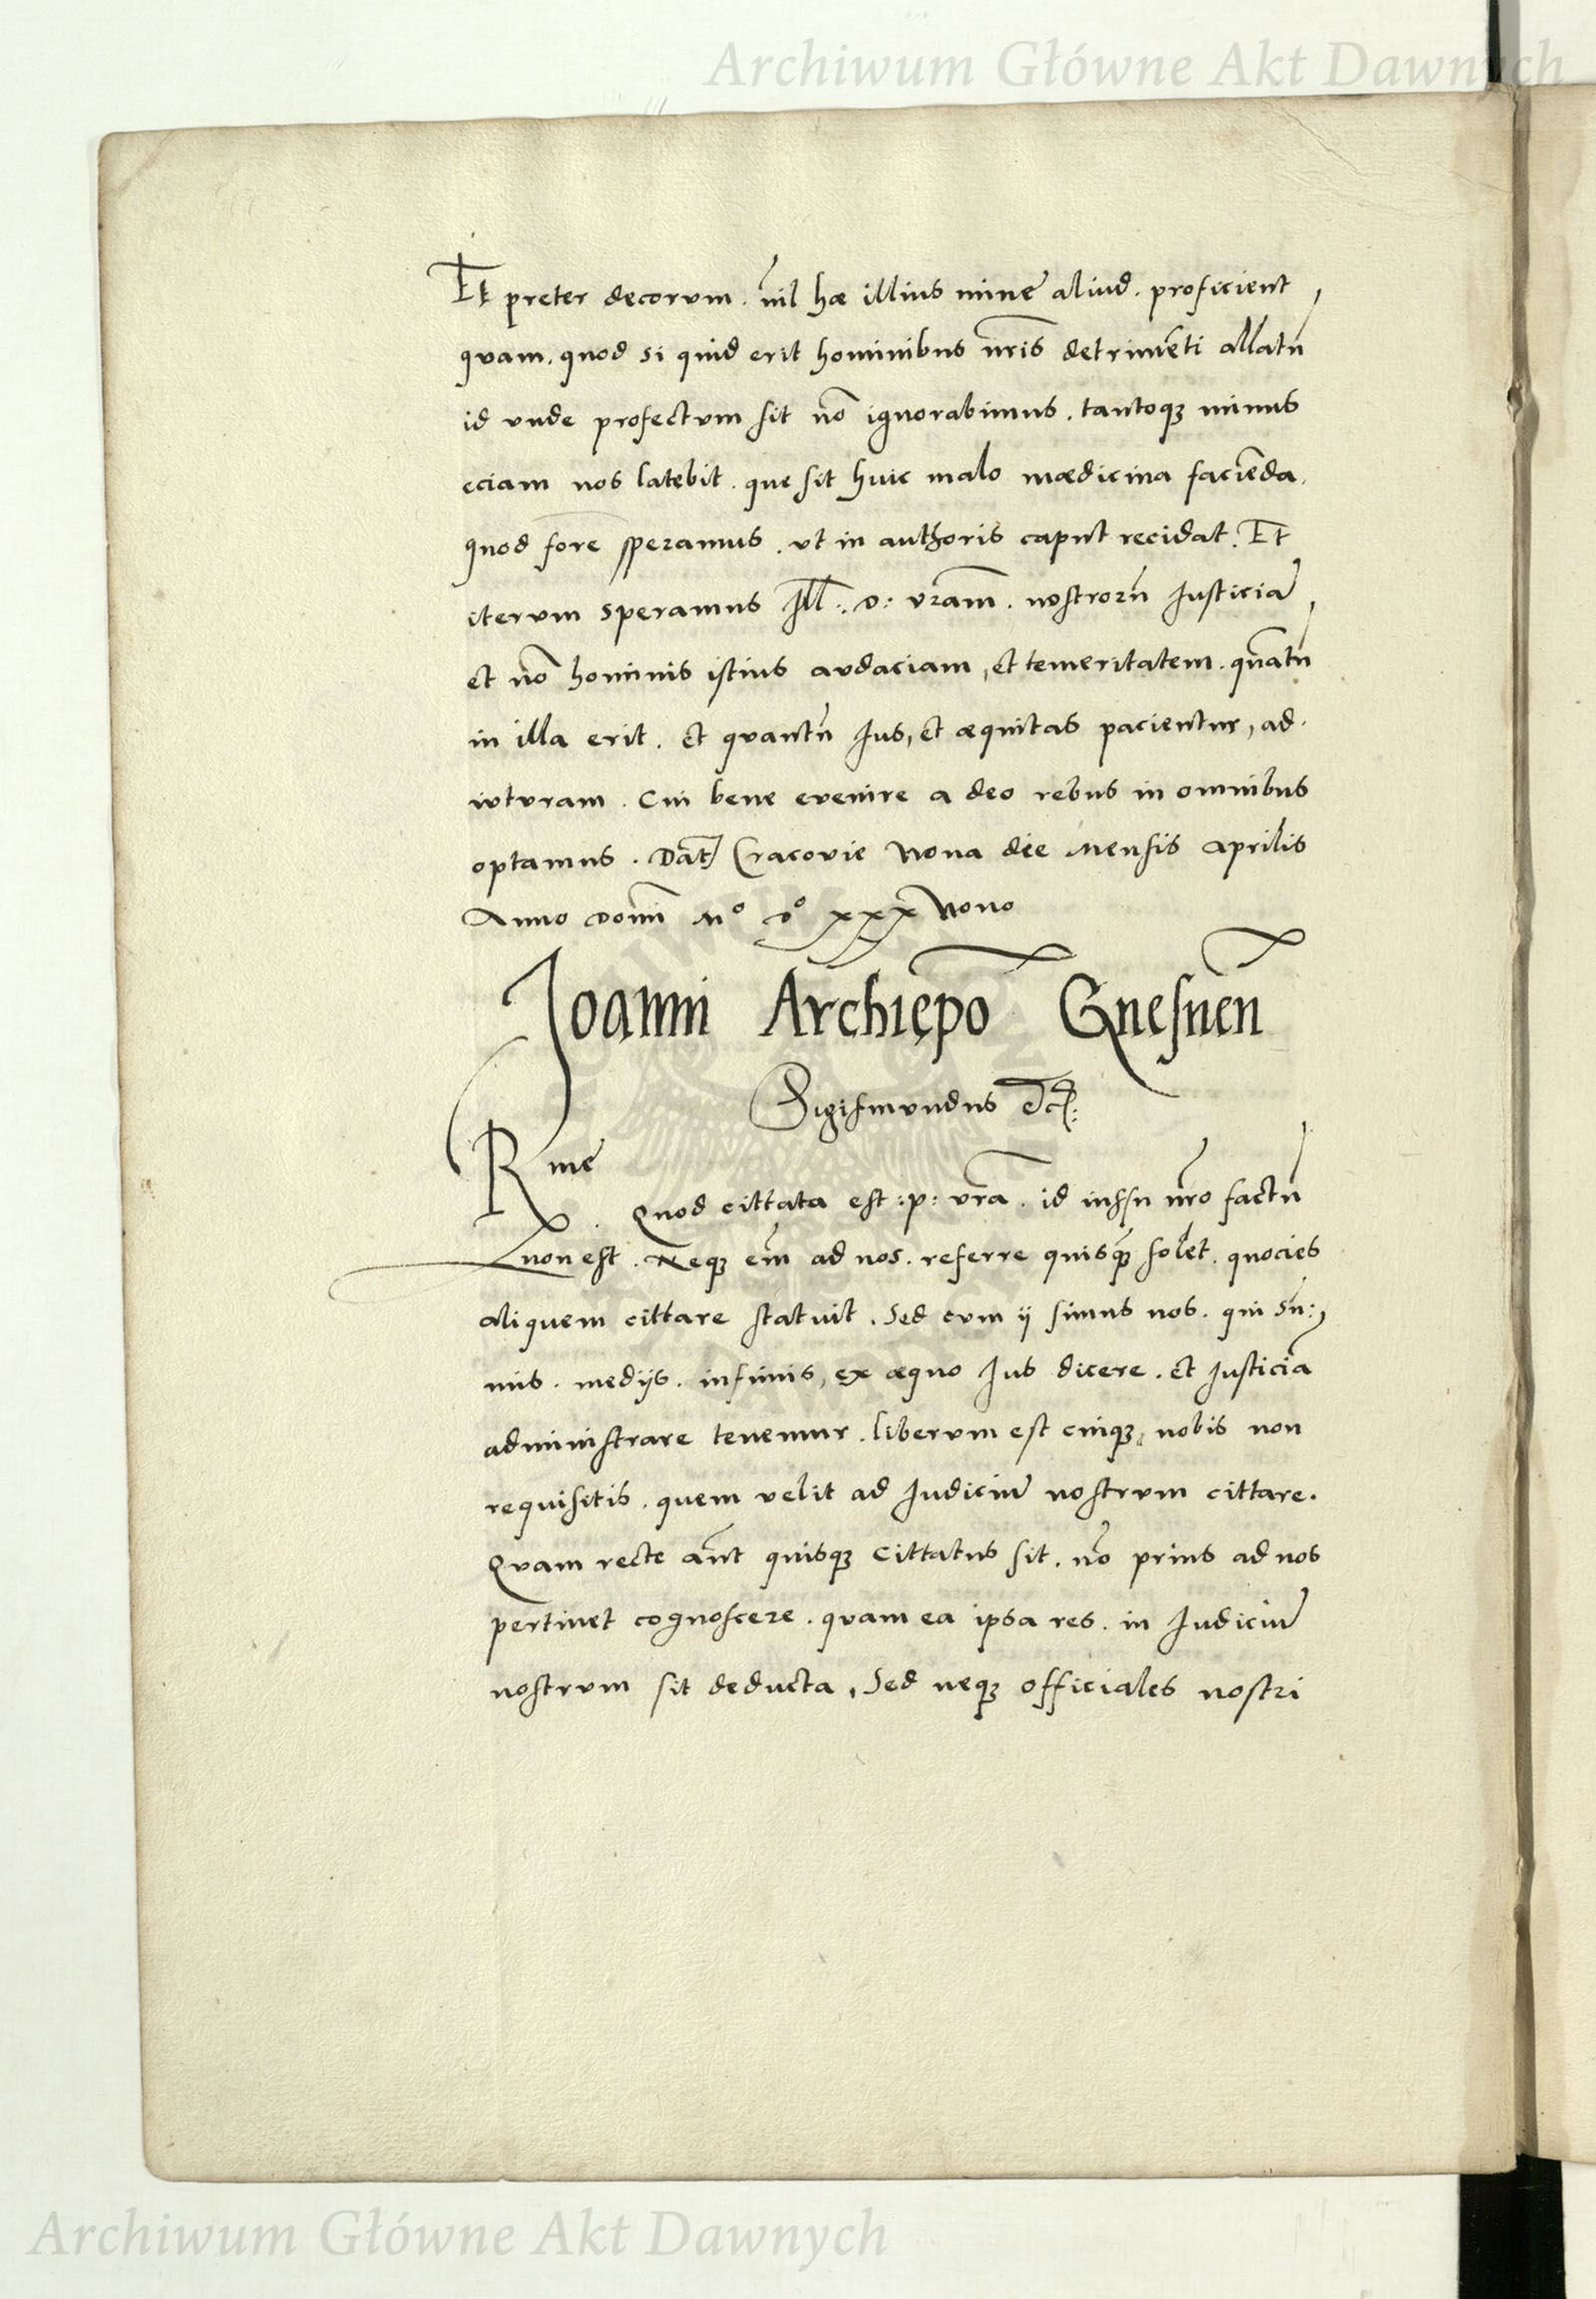 Archiwum Główne Akt Dawnych
Et preter decorum . nĩl hæ illius minẽ aliud . proficient
quam . quod si quid erit hominibus nr̃is detrimẽti allatũ
id vnde profectum sit nõ ignorabimus . tantoqꝫ minus
eciam nos latebit . que sit huic malo mædicina faciẽda .
quod fore speramus . vt in authoris caput recidat . Et
iterum speramus Ill̃ : D : vr̃am . nostrorũ Iusticiã
et nõ hominis istius audaciam , et temeritatem . quãtũ
in illa erit . et quantũ Ius , et æquitas pacientur , ad-
iuturam . Cui bene evenire a deo rebus in omnibus
optamus . Dat̃ Cracovie Nona die Mensis Aprilis
Anno Domĩ Mº Dº xxx Nono
Joanni Archiepõ Gnesneñ
Sigismundus etc̃ :
Rme
Quod cittata est : p : vr̃a . id iussu nr̃o factũ
non est . Neqꝫ em̃ ad nos . referre quisqꝫ̃ solet . quocies
aliquem cittare statuit . Sed cum ij simus nos . qui sũ :
mis . medijs . infimis , ex æquo Ius dicere . et Iusticiã
administrare tenemur . liberum est cuiqꝫ , nobis non
requisitis . quem velit ad Iudiciũ nostrum cittare .
Quam recte aũt quisqꝫ cittatus sit . nõ prius ad nos
pertinet cognoscere . quam ea ipsa res . in Iudiciũ
nostrum sit deducta , Sed neqꝫ officiales nostri
Archiwum Główne Akt Dawnych